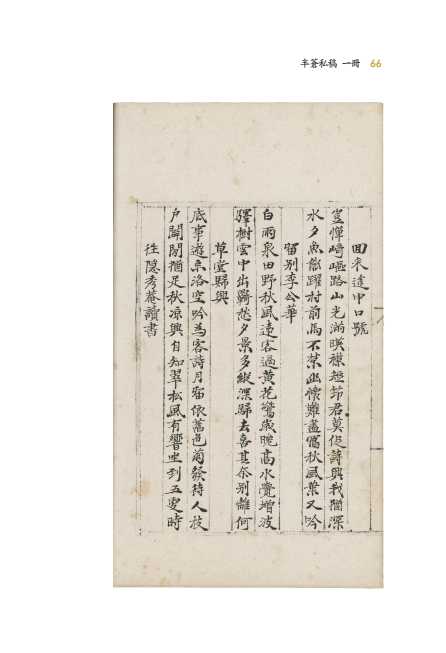 半蒼私稿 一冊 66
回來途中口號
豈憚崎嶇路山光滿暎襟短節君莫促詩興我閒深
水夕魚飜躍村前馬不禁幽懷難盡寫秋風葉又吟
留别李公華
白雨泉田野秋風遠客過黃花驚歲晚高水覺增波
驛樹雲中出離愁夕景多縱深歸去喜其奈别離何
草堂歸興
底事遊京洛空吟爲客詩月留依舊色菊發待人枝
戶闢閒猶足秋凉興自知翠松風有響坐到五更時
往隱秀菴讀書